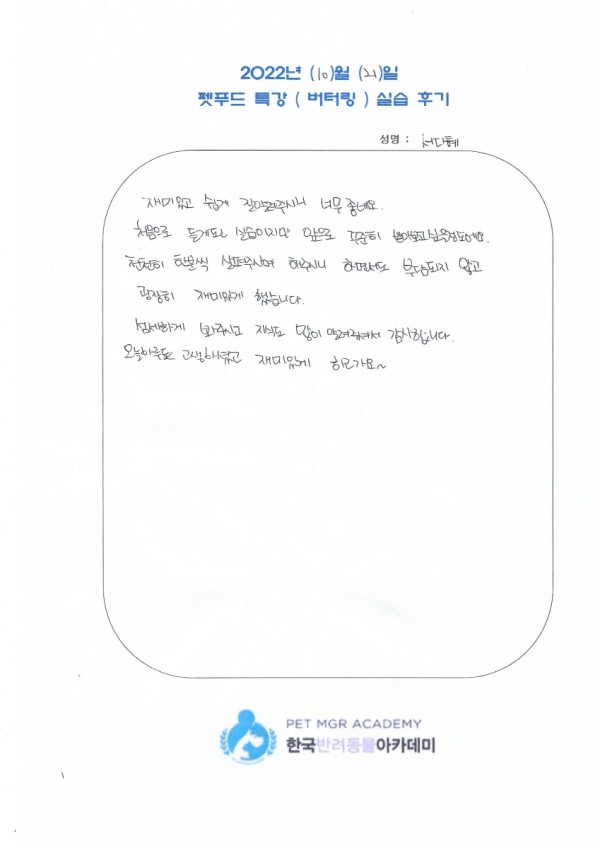 2022년 (10)월 (21)일
펫푸드 특강 ( 버터링 ) 실습 후기
성명 : 서다혜
재미있고 쉽게 잘알려주시니 너무 좋네요.
처음으로 듣게되는 실습이지만 앞으로 꾸준히 정도예요.
천천히 한분씩 살펴주시며 해주시니 하면서도 부담되지 않고
굉장히 재미있게 했습니다.
섬세하게 봐주시고 지식도 많이 알려주셔서 감사합니다.
오늘하루도 고생하셨고 재미있게 하고가요~
PET MGR ACADEMY
한국반려동물아카데미